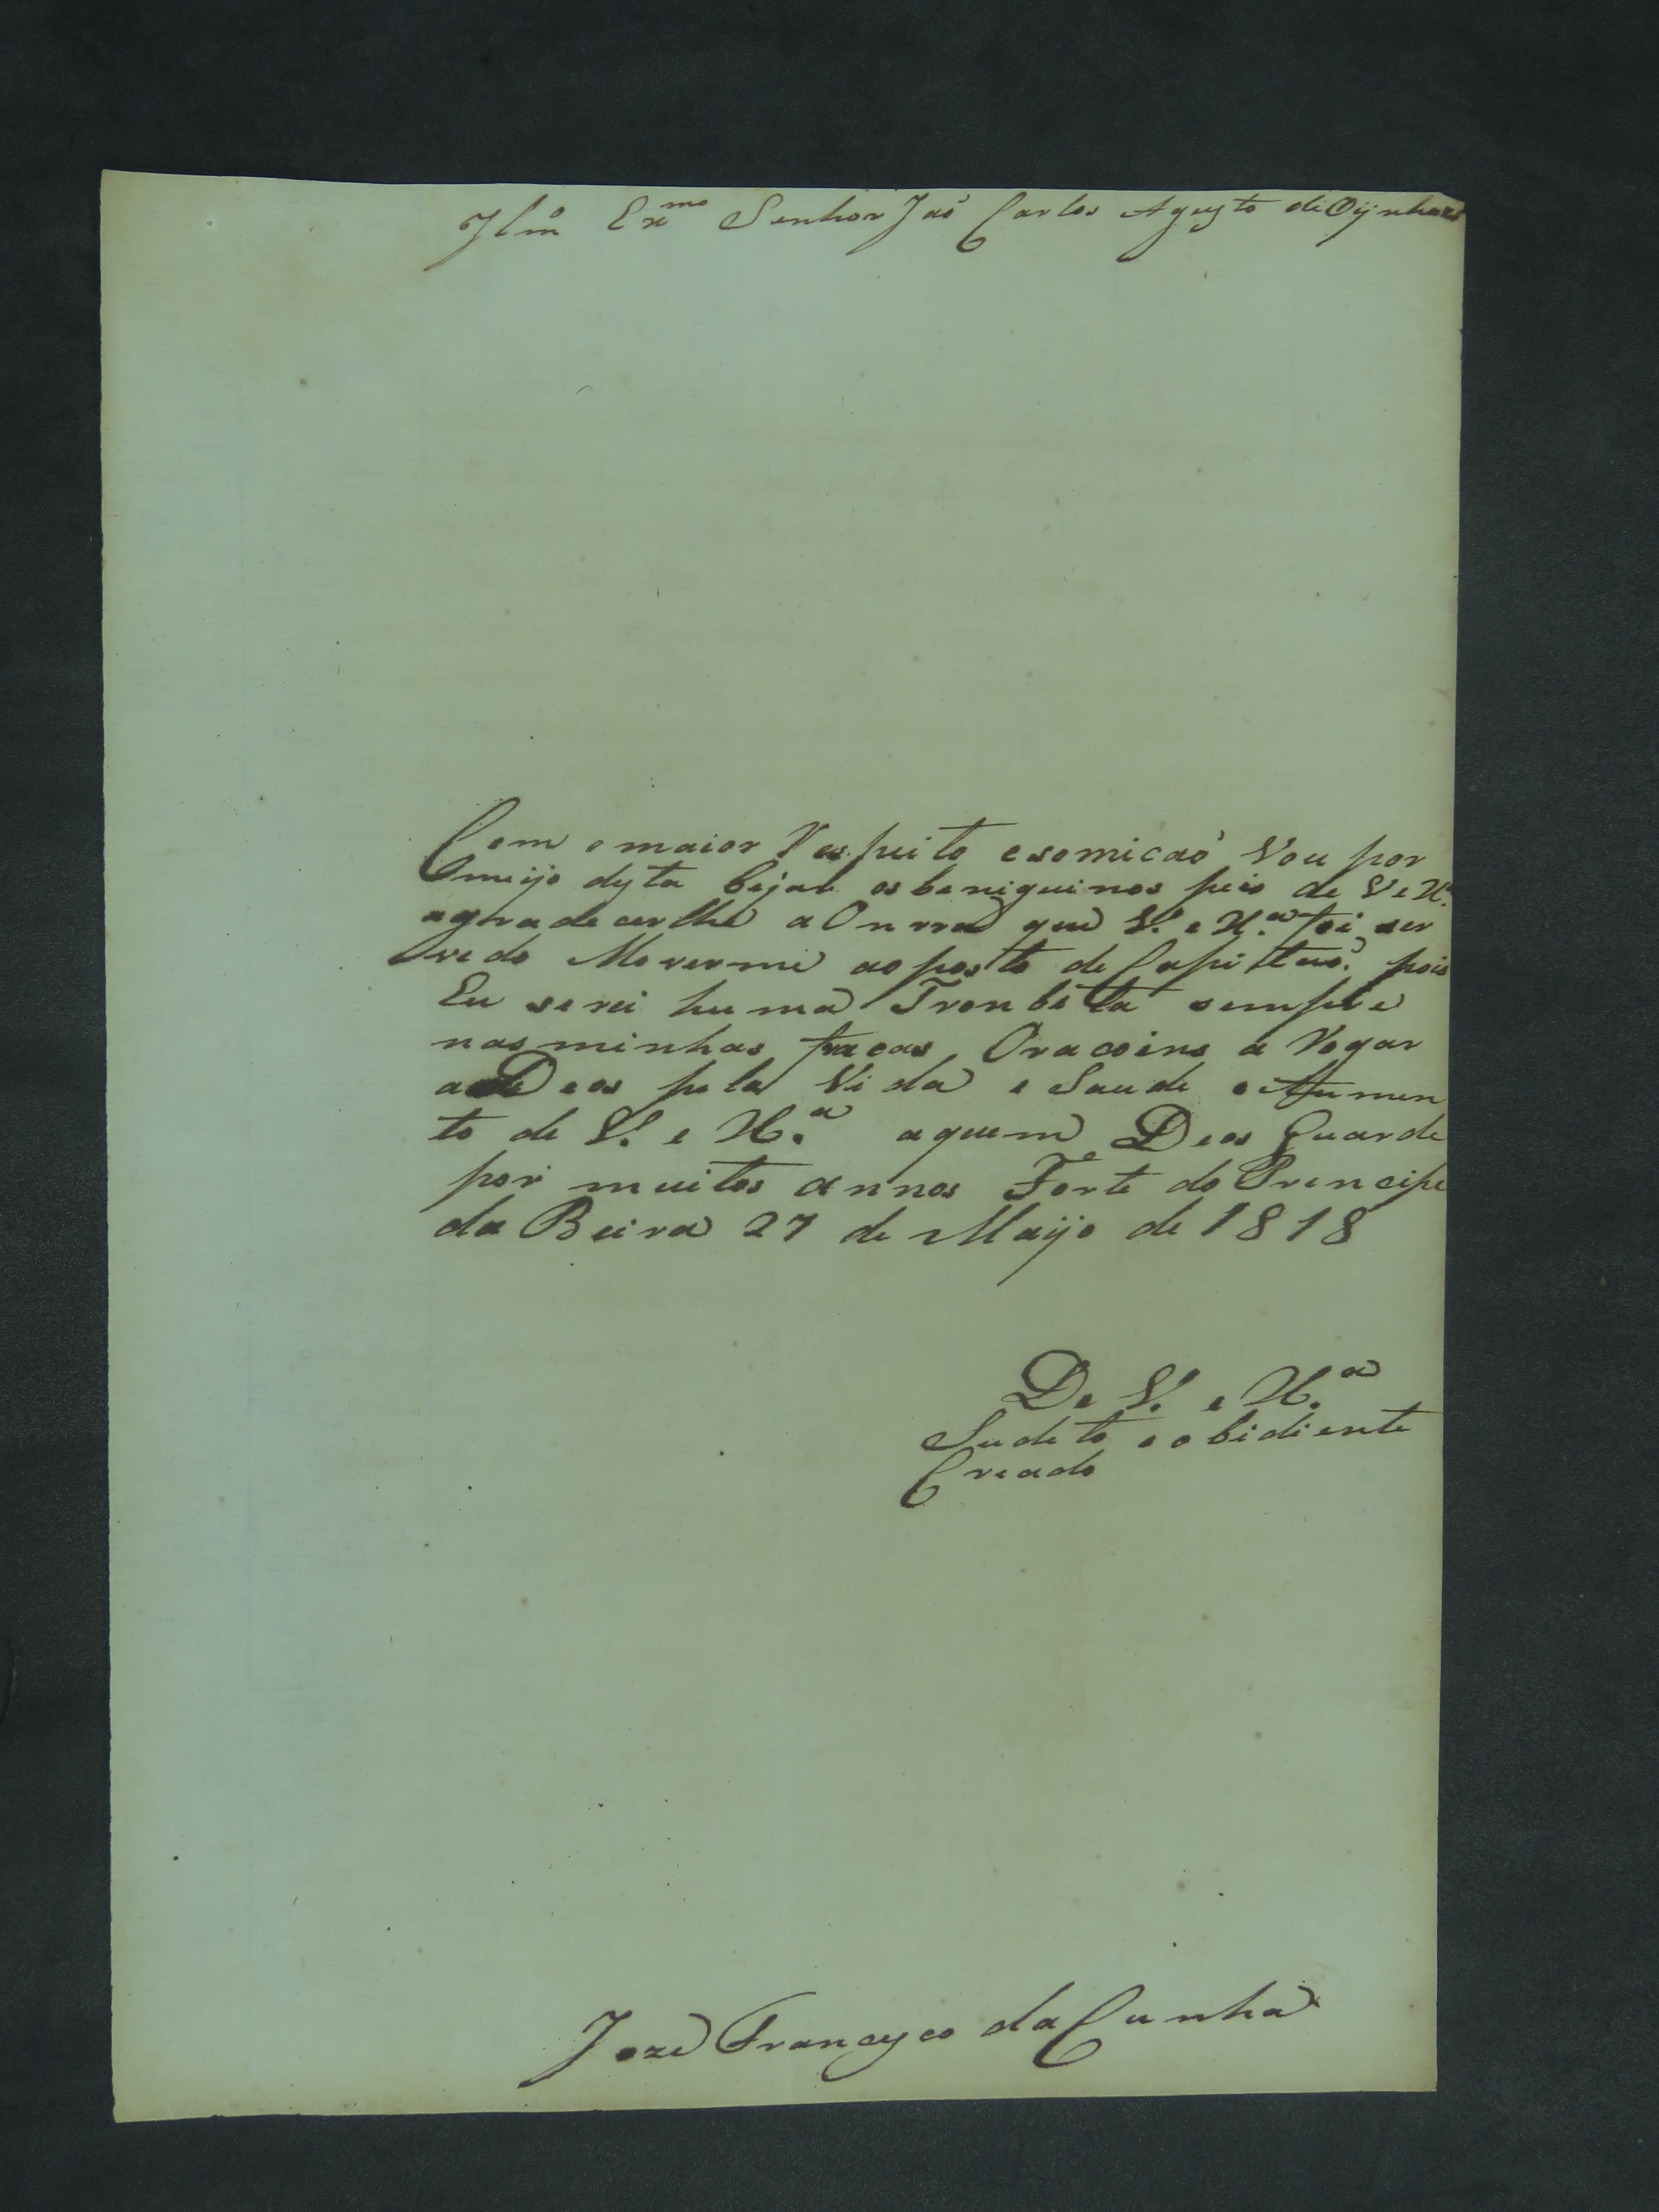 Jlm.º Ex.mo Senhor Jaõ Carlos Agusto de Oÿnhaes
Com o maior Respeito e somicaõ Vou por
Omeijo dysta bejar os beniguinos peis de V. e X.ª
agradecerlhe a Onrra que V. e X.ª foi ser
vedo Moverme ao posto de Capitaõ. pois
Eu serei huma Tronbeta sempre
nas minhas fracas Oracoins a Rogar
a Deos pela Vida e Saude e Aumen
to de V. e X.ª aquem Deos Guarde
por muitos annos Forte do Prencipe
da Beira 27 de Maijo de 1818
De V. e X.ª
Sudeto e obidiente
Creado
Joze Francysco da Cunha